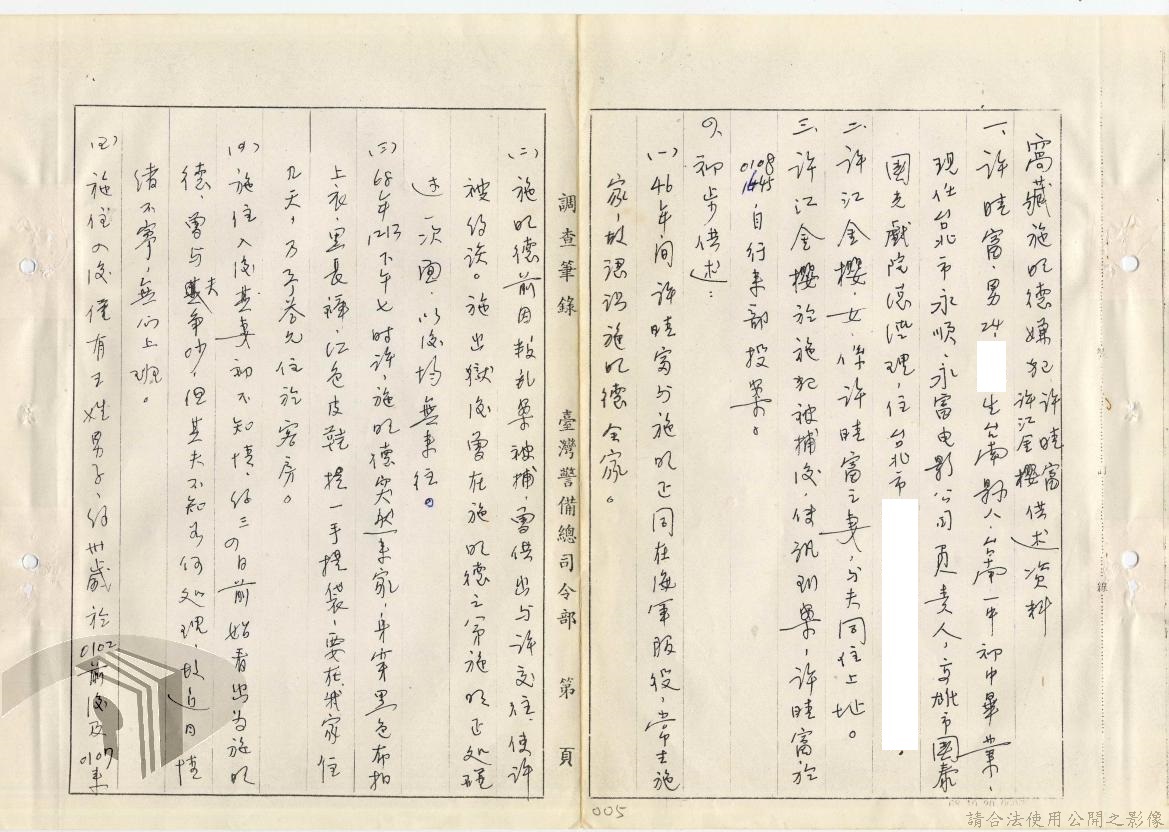 窩藏施明德嫌犯許晴富許江金櫻供述資料
一、許晴富、男24.
生台南縣人、台南一中初中畢業、
現住台北市永順、永富电影公司負責人、高雄市國泰
國光戲院總經理、住台北市
二、許江金櫻、女、係許晴富之妻、与夫同住上址。
三、許江金櫻於施犯被捕後、使訊到案、許晴富於
0108
1445自行来部投案。
四、初步供述：
(一)46年间許晴富与施明正同在海軍服役、常去施
家、故認識施明德全家。
調查筆錄
臺灣警備總司令部
第 頁
(二)施明德前因叛乱案被捕、曾供出与許交往、使許
被约談。施出獄後曾在施明德之弟施明正处碰
过一次面、以後均無来往。
(三)68年1213下午七时許、施明德突然来家、身穿黑色布扣
上衣、黑長褲、红色皮鞋、提一手提袋、要在我家住
几天、乃予答允住於客房。
(四)施住入後其妻初不知情、约三四日前始看出為施明
德、曾与其夫争吵、但其夫不知为何处理、故近日情
绪不寧、無心上班。
(五)施住入後僅有王姓男子、约卅歲於0102前後及0107来
005
線
請合法使用公開之影像